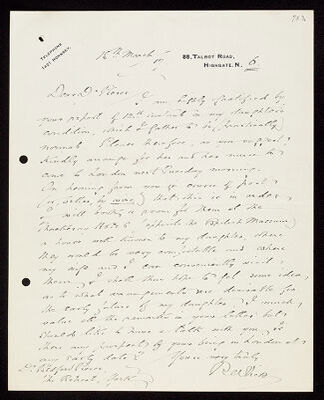 TELEPHONE
1425, HORNSEY.
88, TALBOT ROAD,
HIGHGATE, N. 6
15th March
Dear Dr Pierce
I am highly gratified by
your report of 12th instant on my daughter's
condition, which I gather to be (practically)
normal. Please therefore, as you suggest,
kindly arrange for her and her nurse to
come to London next Tuesday morning.
On hearing from you in course of post
(or, better, by wire) that this is in order,
I will book a room for them at the
Hotel (opposite the British Museum)
a house well known to my daughter, where
they would be very comfortable and where
my wife and I can conveniently visit
them. I shall then hope to get some idea
as to what arrangements are desirable for
the early future of my daughter. I much
value all the remarks in your letter, but
should like to have a talk with you, is
there any prospect of your being in London at
any early date?
Yours very truly
Dr. Bedford Pierce
The Retreat, York